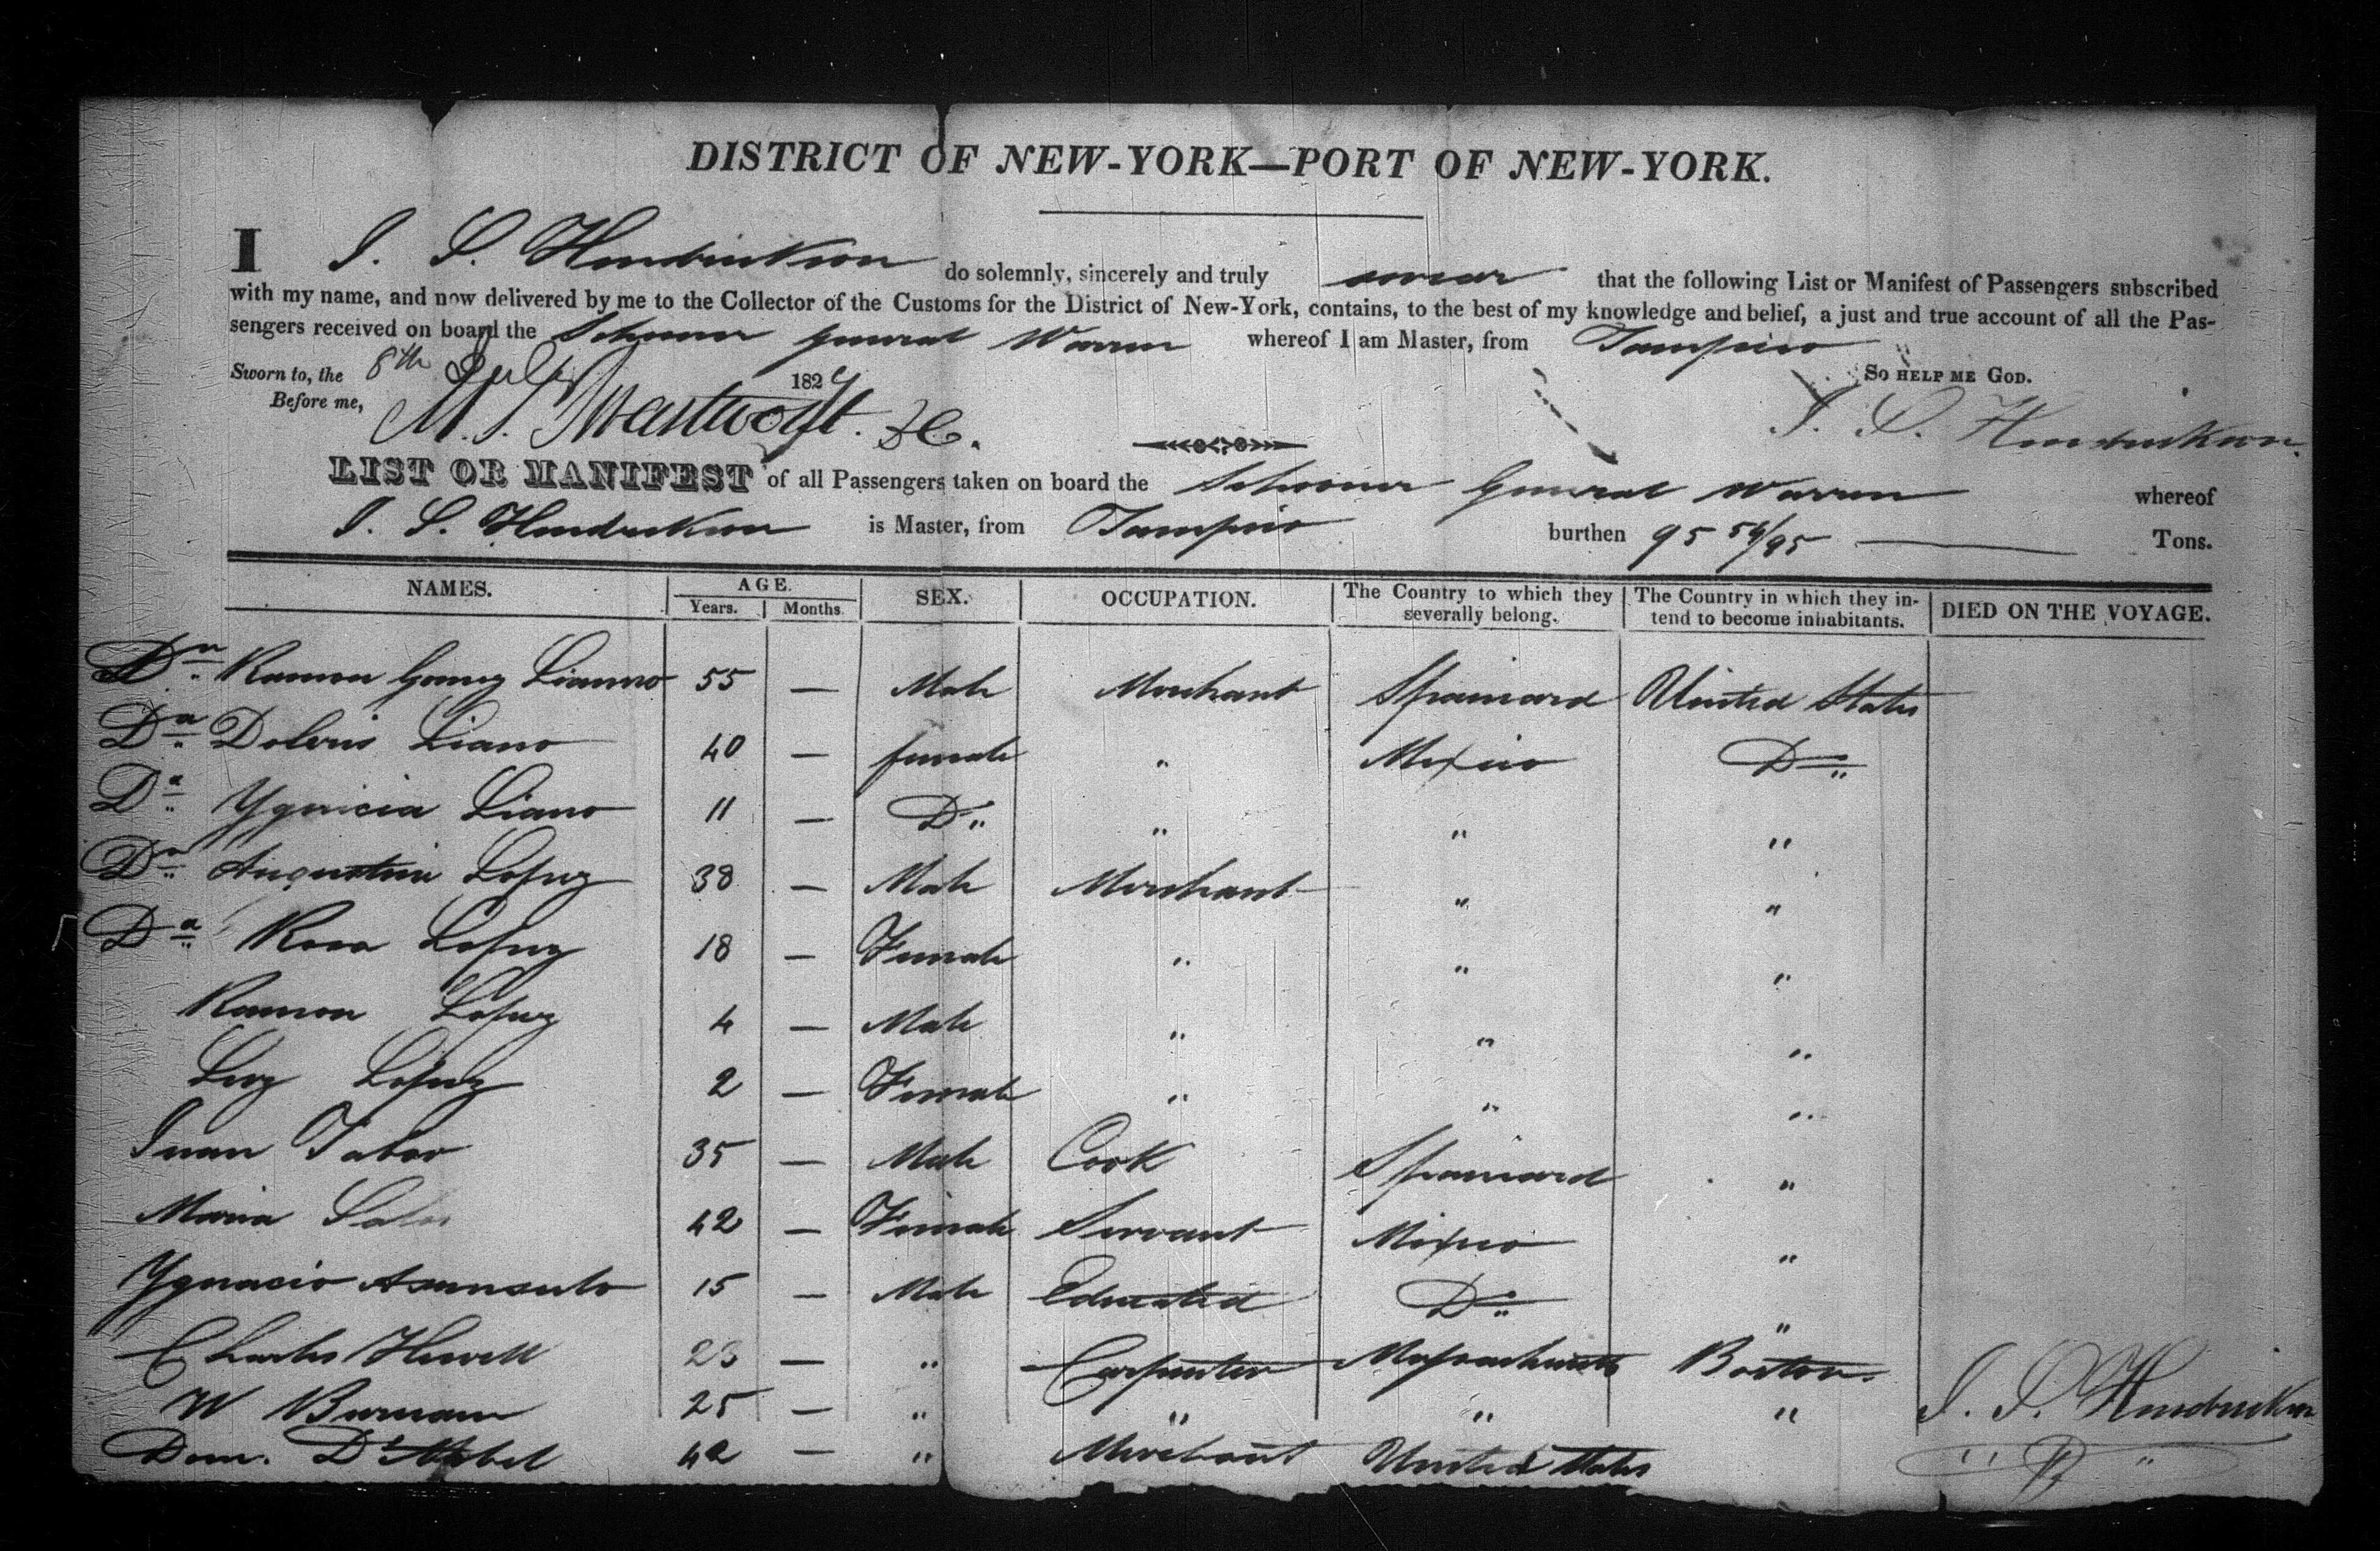 DISTRICT OF NEW-YORK—PORT OF NEW-YORK.
I J. S. Hendrickson do solemnly, sincerely and truly swear that the following List or Manifest of Passengers subscribed
with my name, and now delivered by me to the Collector of the Customs for the District of New-York, contains, to the best of my knowledge and belief, a just and true account of all the Pas-
sengers received on board the Schooner General Warren whereof I am Master, from Tampico
Sworn to, the 8th July 1827 SO HELP ME GOD.
Before me, J. S. Hendrickson.
LIST OR MANIFEST of all Passengers taken on board the Schooner General Warren whereof
J. S. Hendrickson is Master, from Tampico burthen 95 54/95 Tons.
NAMES. AGE. SEX. OCCUPATION. The Country to which they severally belong. The Country in which they intend to become inhabitants. DIED ON THE VOYAGE.
Years. Months.
Dn Ramon Gomez Lianno 55 — Male Merchant Spainard United States
Da Doloris Liano 40 — female " Mexico Do
Da Ygnicia Liano 11 — Do " " "
Dn Augustin Lopez 38 — Male Merchant " "
Da Rosa Lopez 18 — Female " " "
Ramon Lopez 4 — Male " " "
Luz Lopez 2 — Female " " "
Juan Tabor 35 — Male Cook Spainard "
Maria 42 — Female Servant Mexico "
Ygnacio 15 — Male Educated Do "
Charles Hewell 23 — " Carpenter Massachusetts Boston.
W Burnam 25 — " " " " J. S. Hendrickson
Dom. 42 — " Merchant United States